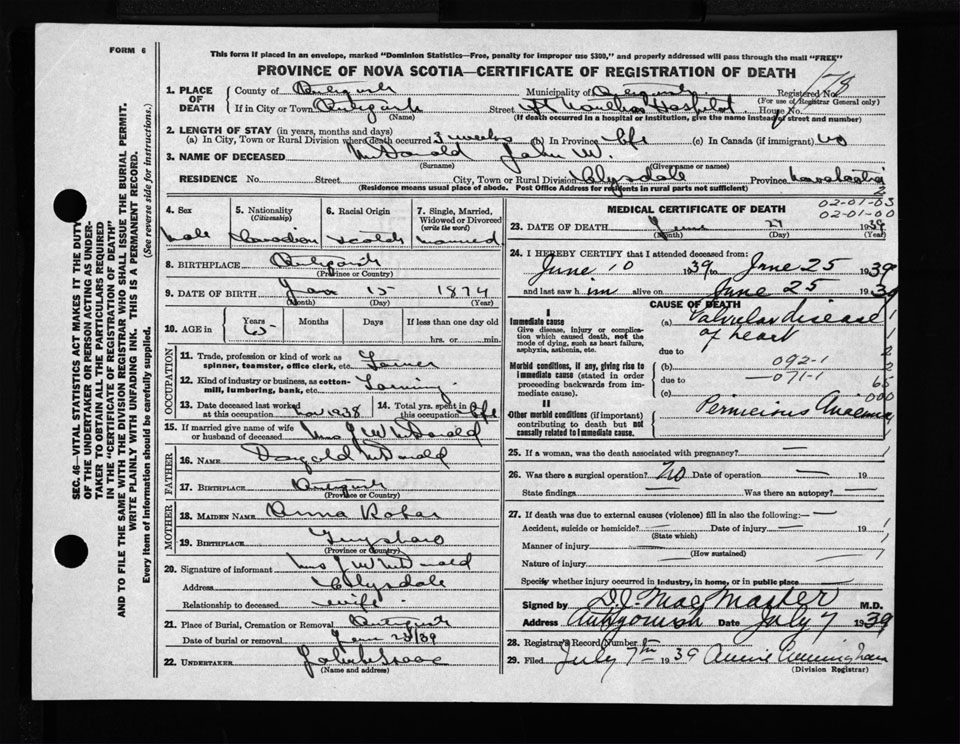 FORM 6
This form if placed in an envelope, marked "Dominion Statistics—Free, penalty for improper use $300," and properly addressed will pass through the mail "FREE"
PROVINCE OF NOVA SCOTIA—CERTIFICATE OF REGISTRATION OF DEATH
178
1. PLACE OF DEATH County of Antigonish Municipality of Antigonish Registered No.
(For use of Registrar General only)
If in City or Town Antigonish Street St Marthas Hospital House No.
(Name) (If death occurred in a hospital or institution, give the name instead of street and number)
2. LENGTH OF STAY (in years, months and days)
(a) In City, Town or Rural Division where death occurred 3 weeks (b) In Province life (c) In Canada (if immigrant) no
3. NAME OF DECEASED McDonald John W.
(Surname) (Given name or names)
RESIDENCE No. Street City, Town or Rural Division Clysdale Province Nova Scotia
(Residence means usual place of abode. Post Office Address for residents in rural parts not sufficient)
2
02-01-03
02-01-00
4. Sex 5. Nationality (Citizenship) 6. Racial Origin 7. Single, Married, Widowed or Divorced (write the word)
Male Canadian Scotch married
8. BIRTHPLACE Antigonish
(Province or Country)
9. DATE OF BIRTH 15 1874
(Month) (Day) (Year)
10. AGE in Years Months Days If less than one day old
65 hrs. or min.
OCCUPATION
11. Trade, profession or kind of work as spinner, teamster, office clerk, etc. Farmer
12. Kind of industry or business, as cotton-mill, lumbering, bank, etc. Farming
13. Date deceased last worked at this occupation Nov 1938 14. Total yrs. spent in this occupation life
15. If married give name of wife or husband of deceased Mrs J W McDonald
FATHER
16. NAME McDonald
17. BIRTHPLACE Antigonish
(Province or Country)
MOTHER
18. MAIDEN NAME Anna
19. BIRTHPLACE Guysboro
(Province or Country)
20. Signature of informant Mrs J W McDonald
Address Clysdale
Relationship to deceased wife
21. Place of Burial, Cremation or Removal Antigonish
Date of burial or removal /39
22. UNDERTAKER
(Name and address)
MEDICAL CERTIFICATE OF DEATH
23. DATE OF DEATH June 1939
(Month) (Day) (Year)
24. I HEREBY CERTIFY that I attended deceased from:
June 10 1939 to June 25 1939
and last saw him alive on June 25 1939
CAUSE OF DEATH
I
Immediate cause
Give disease, injury or complication which caused death, not the mode of dying, such as heart failure, asphyxia, asthenia, etc.
(a) Valvular disease of heart
due to
Morbid conditions, if any, giving rise to immediate cause (stated in order proceeding backwards from immediate cause).
(b) 092-1
due to 071-1
(c)
1
1
2
2
65
000
II
Other morbid conditions (if important) contributing to death but not causally related to immediate cause.
Pernicious Anaemia
25. If a woman, was the death associated with pregnancy? —
26. Was there a surgical operation? No Date of operation — 19
State findings Was there an autopsy? —
27. If death was due to external causes (violence) fill in also the following:—
Accident, suicide or homicide? — Date of injury — 19
(State which)
Manner of injury —
(How sustained)
Nature of injury —
Specify whether injury occurred in industry, in home, or in public place —
Signed by D.J. MacMaster M.D.
Address Antigonish Date July 7 1939
28. Registrar's Record Number
29. Filed July 7th 1939 Annie Cunningham
(Division Registrar)
SEC. 46—VITAL STATISTICS ACT MAKES IT THE DUTY
OF THE UNDERTAKER OR PERSON ACTING AS UNDER-
TAKER TO OBTAIN ALL THE PARTICULARS REQUIRED
IN THE "CERTIFICATE OF REGISTRATION OF DEATH"
AND TO FILE THE SAME WITH THE DIVISION REGISTRAR WHO SHALL ISSUE THE BURIAL PERMIT.
WRITE PLAINLY WITH UNFADING INK. THIS IS A PERMANENT RECORD.
Every item of information should be carefully supplied. (See reverse side for instructions.)